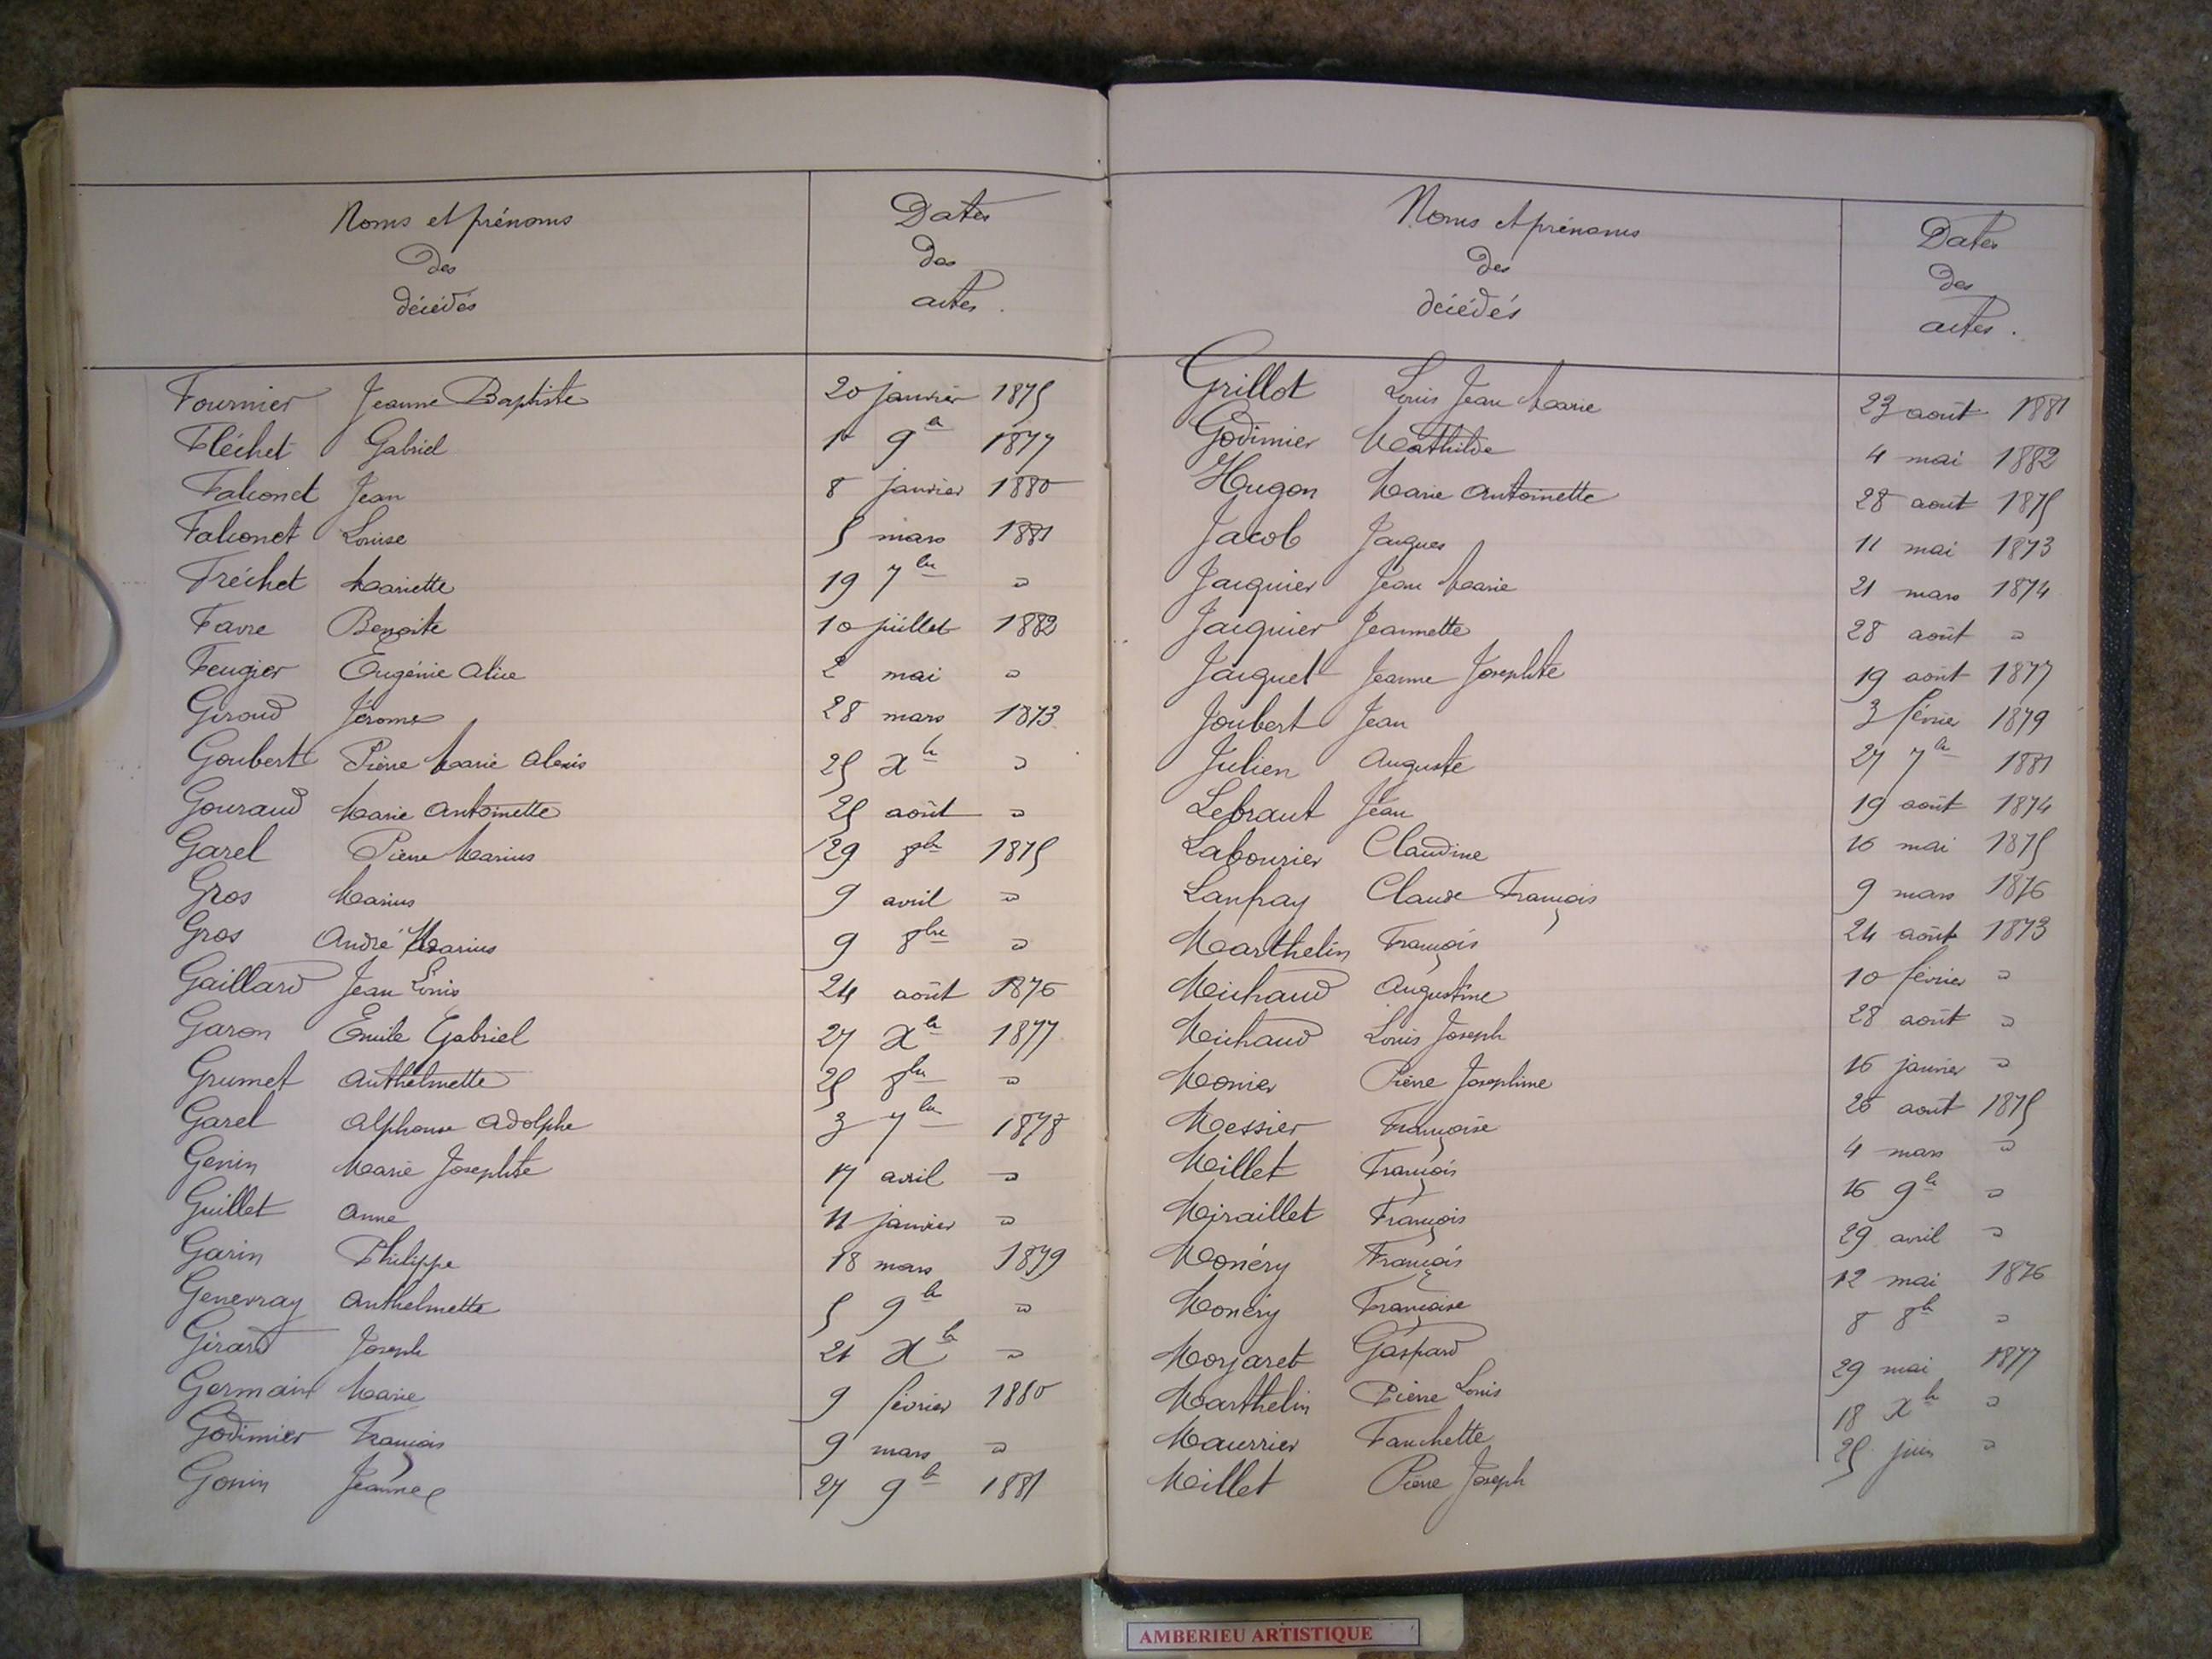 Noms et prénoms
des
décédés
Dates
des
actes.
Fournier Jeanne Baptiste 20 janvier 1875
Fléchet Gabriel 1er 9bre 1877
Falconet Jean 8 janvier 1880
Falconet Louise 5 mars 1881
Fréchet Mariette 19 7bre "
Favre Benoite 10 juillet 1882
Feugier Eugénie Alice 2 mai "
Giroud Jérome 28 mars 1873
Goubert Pierre Marie Alexis 25 Xbre "
Gouraud Marie Antoinette 25 août "
Garel Pierre Marius 29 8bre 1875
Gros Marius 9 avril "
Gros André Marius 9 8bre "
Gaillard Jean Louis 24 août 1876
Garon Emile Gabriel 27 Xbre 1877
Grumet Anthelmette 25 8bre "
Garel Alphonse Adolphe 3 7bre 1878
Genin Marie Josephte 17 avril "
Guillet Anne 11 janvier "
Garin Philippe 18 mars 1879
Genevray Anthelmette 5 9bre "
Girard Joseph 21 Xbre "
Germain Marie 9 février 1880
Godimier François 9 mars "
Gonin Jeanne 27 9bre 1881
Noms et prénoms
des
décédés
Dates
des
actes.
Grillot Louis Jean Marie 23 août 1881
Godimier Mathilde 4 mai 1882
Hugon Marie Antoinette 28 août 1875
Jacob Jacques 11 mai 1873
Jacquier Jean Marie 21 mars 1874
Jacquier Jeannette 28 août "
Jacquet Jeanne Josephte 19 août 1877
Joubert Jean 3 février 1879
Julien Auguste 27 7bre 1881
Lebraut Jean 19 août 1874
Labourier Claudine 16 mai 1875
Lanfray Claude François 9 mars 1876
Marthelin François 24 août 1873
Michaud Augustine 10 février "
Michaud Louis Joseph 28 août "
Monier Pierre Josephine 16 janvier "
Messier Françoise 26 août 1875
Millet François 4 mars "
Miraillet François 16 9bre "
Monéry François 29 avril "
Monéry Françoise 12 mai 1876
Morjaret Gaspard 8 8bre "
Marthelin Pierre Louis 29 mai 1877
Maurrier Fanchette 18 Xbre "
Millet Pierre Joseph 25 juin "
AMBERIEU ARTISTIQUE